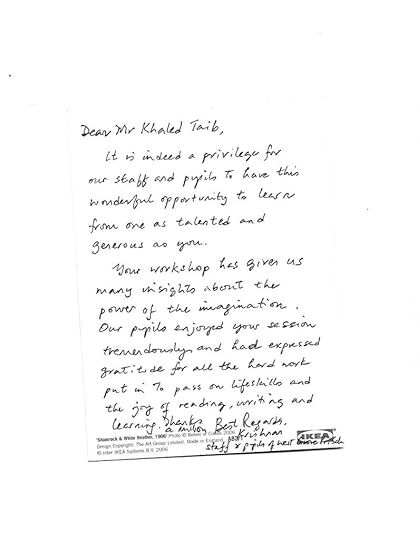 Dear Mr Khaled Taib,
It is indeed a privilege for
our staff and pupils to have this
wonderful opportunity to learn
from one as talented and
generous as you.
Your workshop has given us
many insights about the
power of the imagination.
Our pupils enjoyed your session
tremendously and had expressed
gratitude for all the hard work
put in to pass on lifeskills and
the joy of reading, writing and
learning. Thanks
a million Best Regards,
'Shamrock & White Heather, 1906' Photo ©
Krishnan
Design Copyright: The Art Group Limited. Made in England.
IKEA
staff & pupils of West
© Inter IKEA Systems B.V. 2006